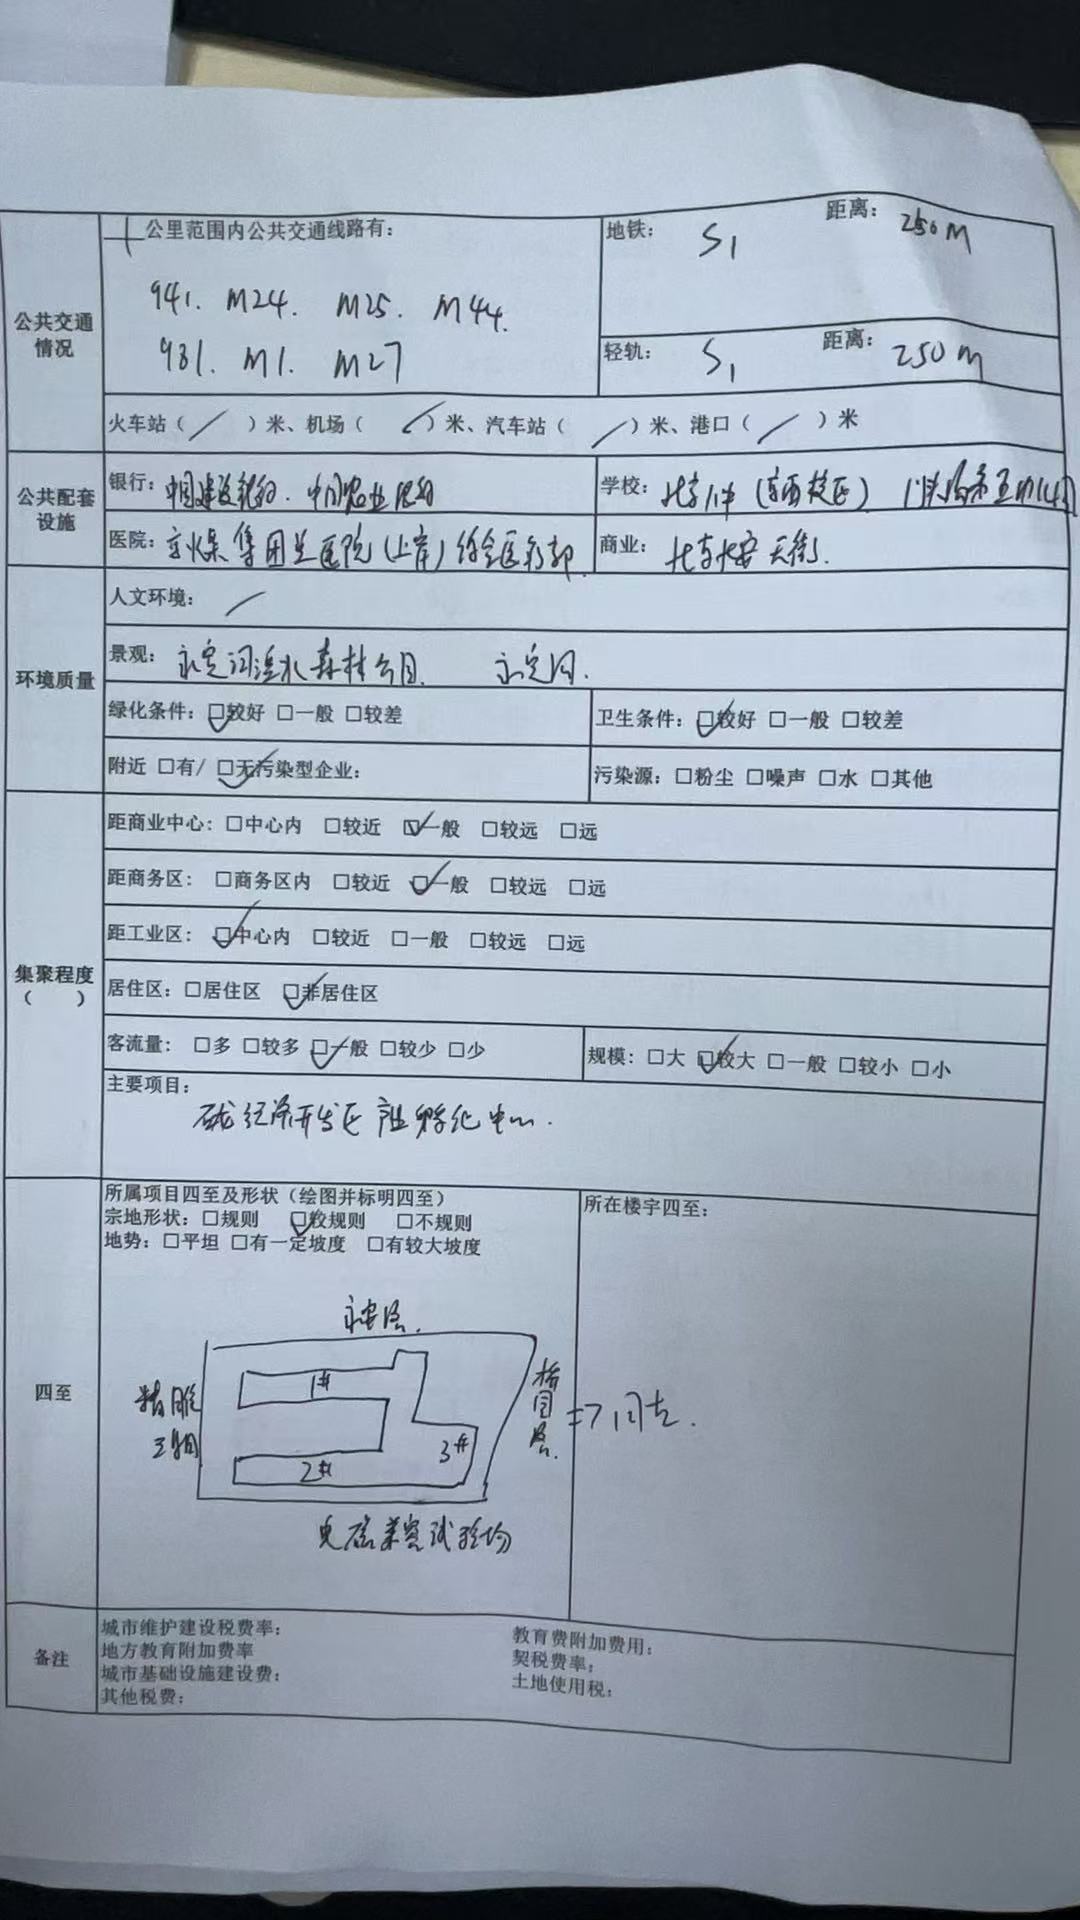 公共交通情况
公里范围内公共交通线路有：
941. M24. M25. M44.
981. M1. M27
地铁： S1 距离： 250M
轻轨： S1 距离： 250m
火车站（ / ）米、机场（ / ）米、汽车站（ / ）米、港口（ / ）米
公共配套设施
银行：中国建设银行. 中国农业银行
学校：北京八中（京西校区）
医院：京煤集团总医院（上岸）综合医疗部
商业：北京长安天街.
环境质量
人文环境： /
景观：永定河滨水森林公园. 永定河.
绿化条件：☑较好 □一般 □较差
卫生条件：☑较好 □一般 □较差
附近 □有/ ☑无污染型企业：
污染源：□粉尘 □噪声 □水 □其他
集聚程度（ ）
距商业中心：□中心内 □较近 ☑一般 □较远 □远
距商务区： □商务区内 □较近 ☑一般 □较远 □远
距工业区： ☑中心内 □较近 □一般 □较远 □远
居住区：□居住区 ☑非居住区
客流量： □多 □较多 ☑一般 □较少 □少
规模：□大 ☑较大 □一般 □较小 □小
主要项目：
经济开发区 产业孵化中心.
四至
所属项目四至及形状（绘图并标明四至）
宗地形状：□规则 ☑较规则 □不规则
地势：□平坦 □有一定坡度 □有较大坡度
永安路.
精雕
1#
2#
3#
桥园路.
电磁兼容试验场
所在楼宇四至：
=> 同左.
备注
城市维护建设税费率：
教育费附加费用：
地方教育附加费率
契税费率：
城市基础设施建设费：
土地使用税：
其他税费：